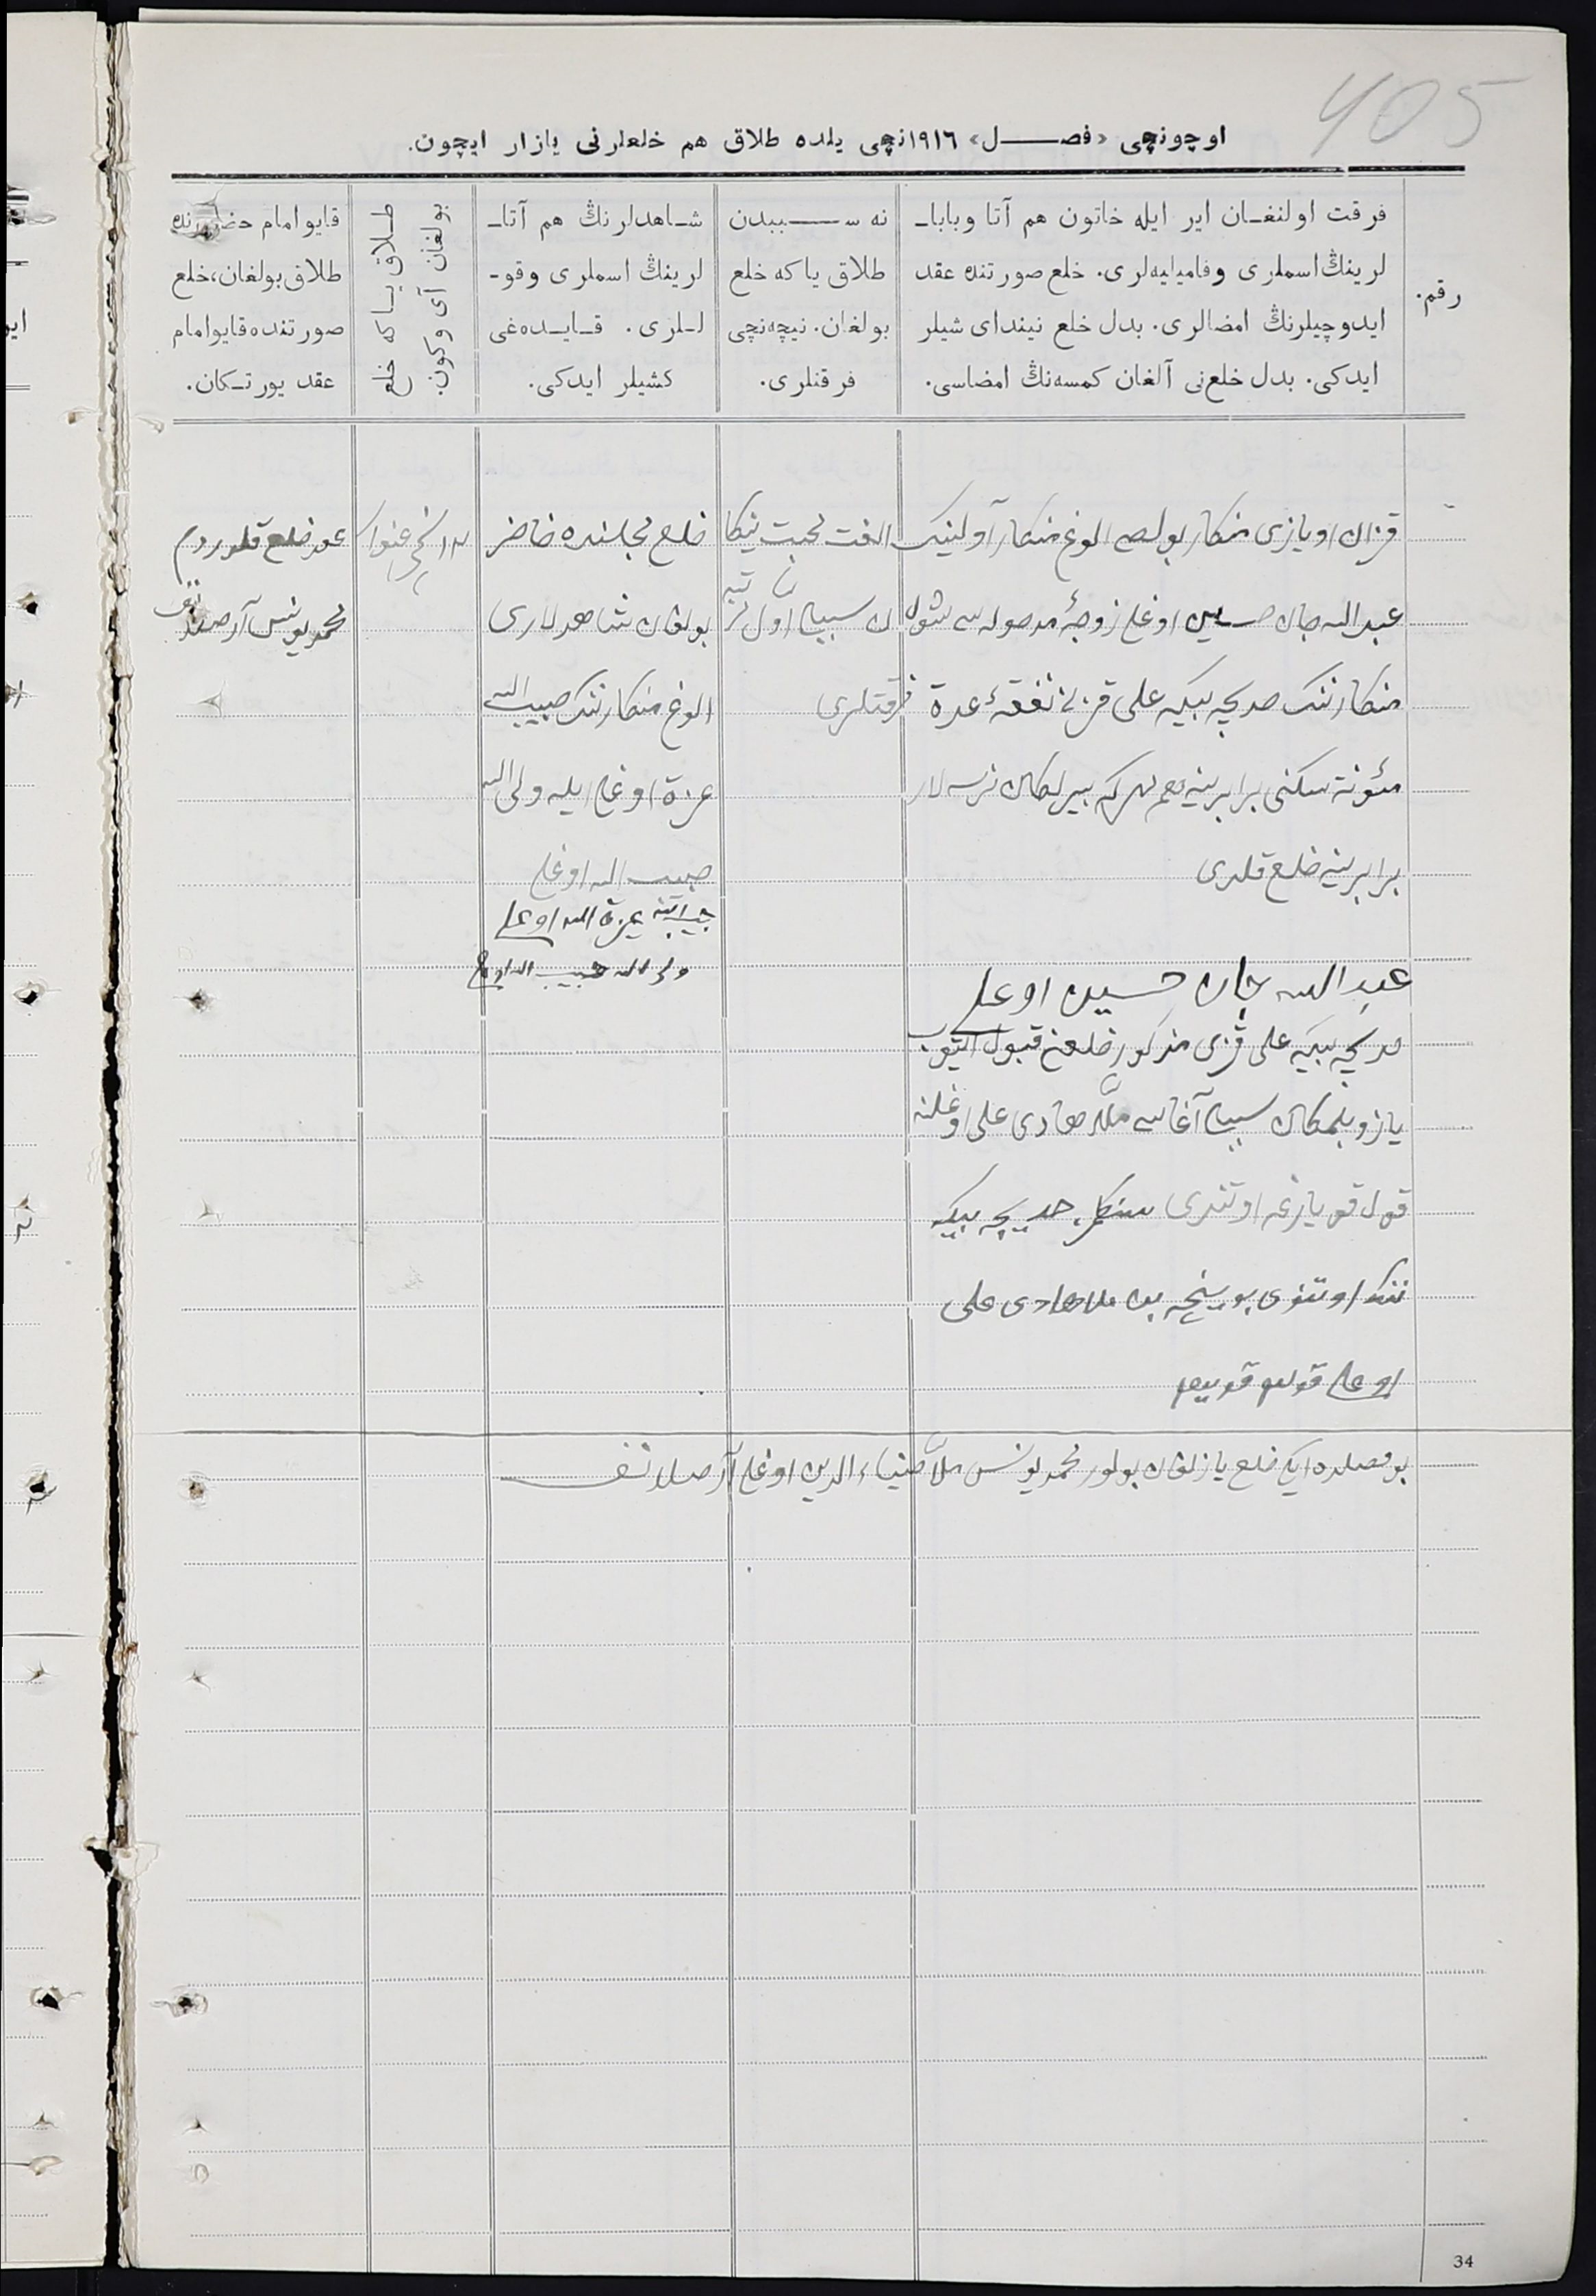 405
اوچونچی «فصـــل» ١٩١٦نچی یلده طلاق هم خلعلرنی یازار ایچون.
رقم.
فرقت اولنغـان ایر ایله خاتون هم آتا وبابا-
لرینڭ اسملری وفامیلیه‌لری. خلع صورتنده عقد
ایدوچیلرنڭ امضالری. بدل خلع نیندای شیلر
ایدکی. بدل خلع‌نی آلغان کمسه‌نڭ امضاسی.
نه ســـببدن
طلاق یا که خلع
بولغان. نیچه‌نچی
فرقتلری.
شـاهدلرنڭ هم آتا-
لرینڭ اسملری وقو-
لـلری. قـایـده‌غی
کشیلر ایدکی.
طـلاق یـا که خلع
بولغان آی وکون.
قایو امام حضورنده
طلاق بولغان، خلع
صورتنده قایو امام
عقد یورتـکان.
قزان اویازی منکار بولصی الوغ منکار آولینک
عبدالله جان حسین اوغلی زوجهٔ مدخوله سی شول
منکارننک خدیچه بیکه علی قزین نفقهٔ عدة
مئونة سکنی برابرینه هم بیرلکان نرسه لار
برابرینه خلع قلدی
عبدالله جان حسین اوغلی
خدیچه بیکه علی قزی مذکور خلعنی قبول ایتوب
یازو بلمکان سببلی آغاسی ملا هادی علی اوغلنه
قول قویارغه اوتندی خدیچه بیکه
ننک اوتنوی بوینچه بن ملا هادی علی
اوغلی قولم قویدم
الفت محبت
سببلی اول
فرقتلری
خلع مجلسنده حاضر
بولغان شاهدلاری
الوغ منکارننک حبیب الله
عزة اوغلی ایله ولی الله
حبیب الله اوغلی
عزة الله اوغلی
ولی الله حبیب الله اوغلی
عقد خلع قلدردم
محمد یونس آرصلانف
بو فصلده ایکی خلع یازلغان بولور محمد یونس ملا ضیاء الدین اوغلی آرصلانف
34